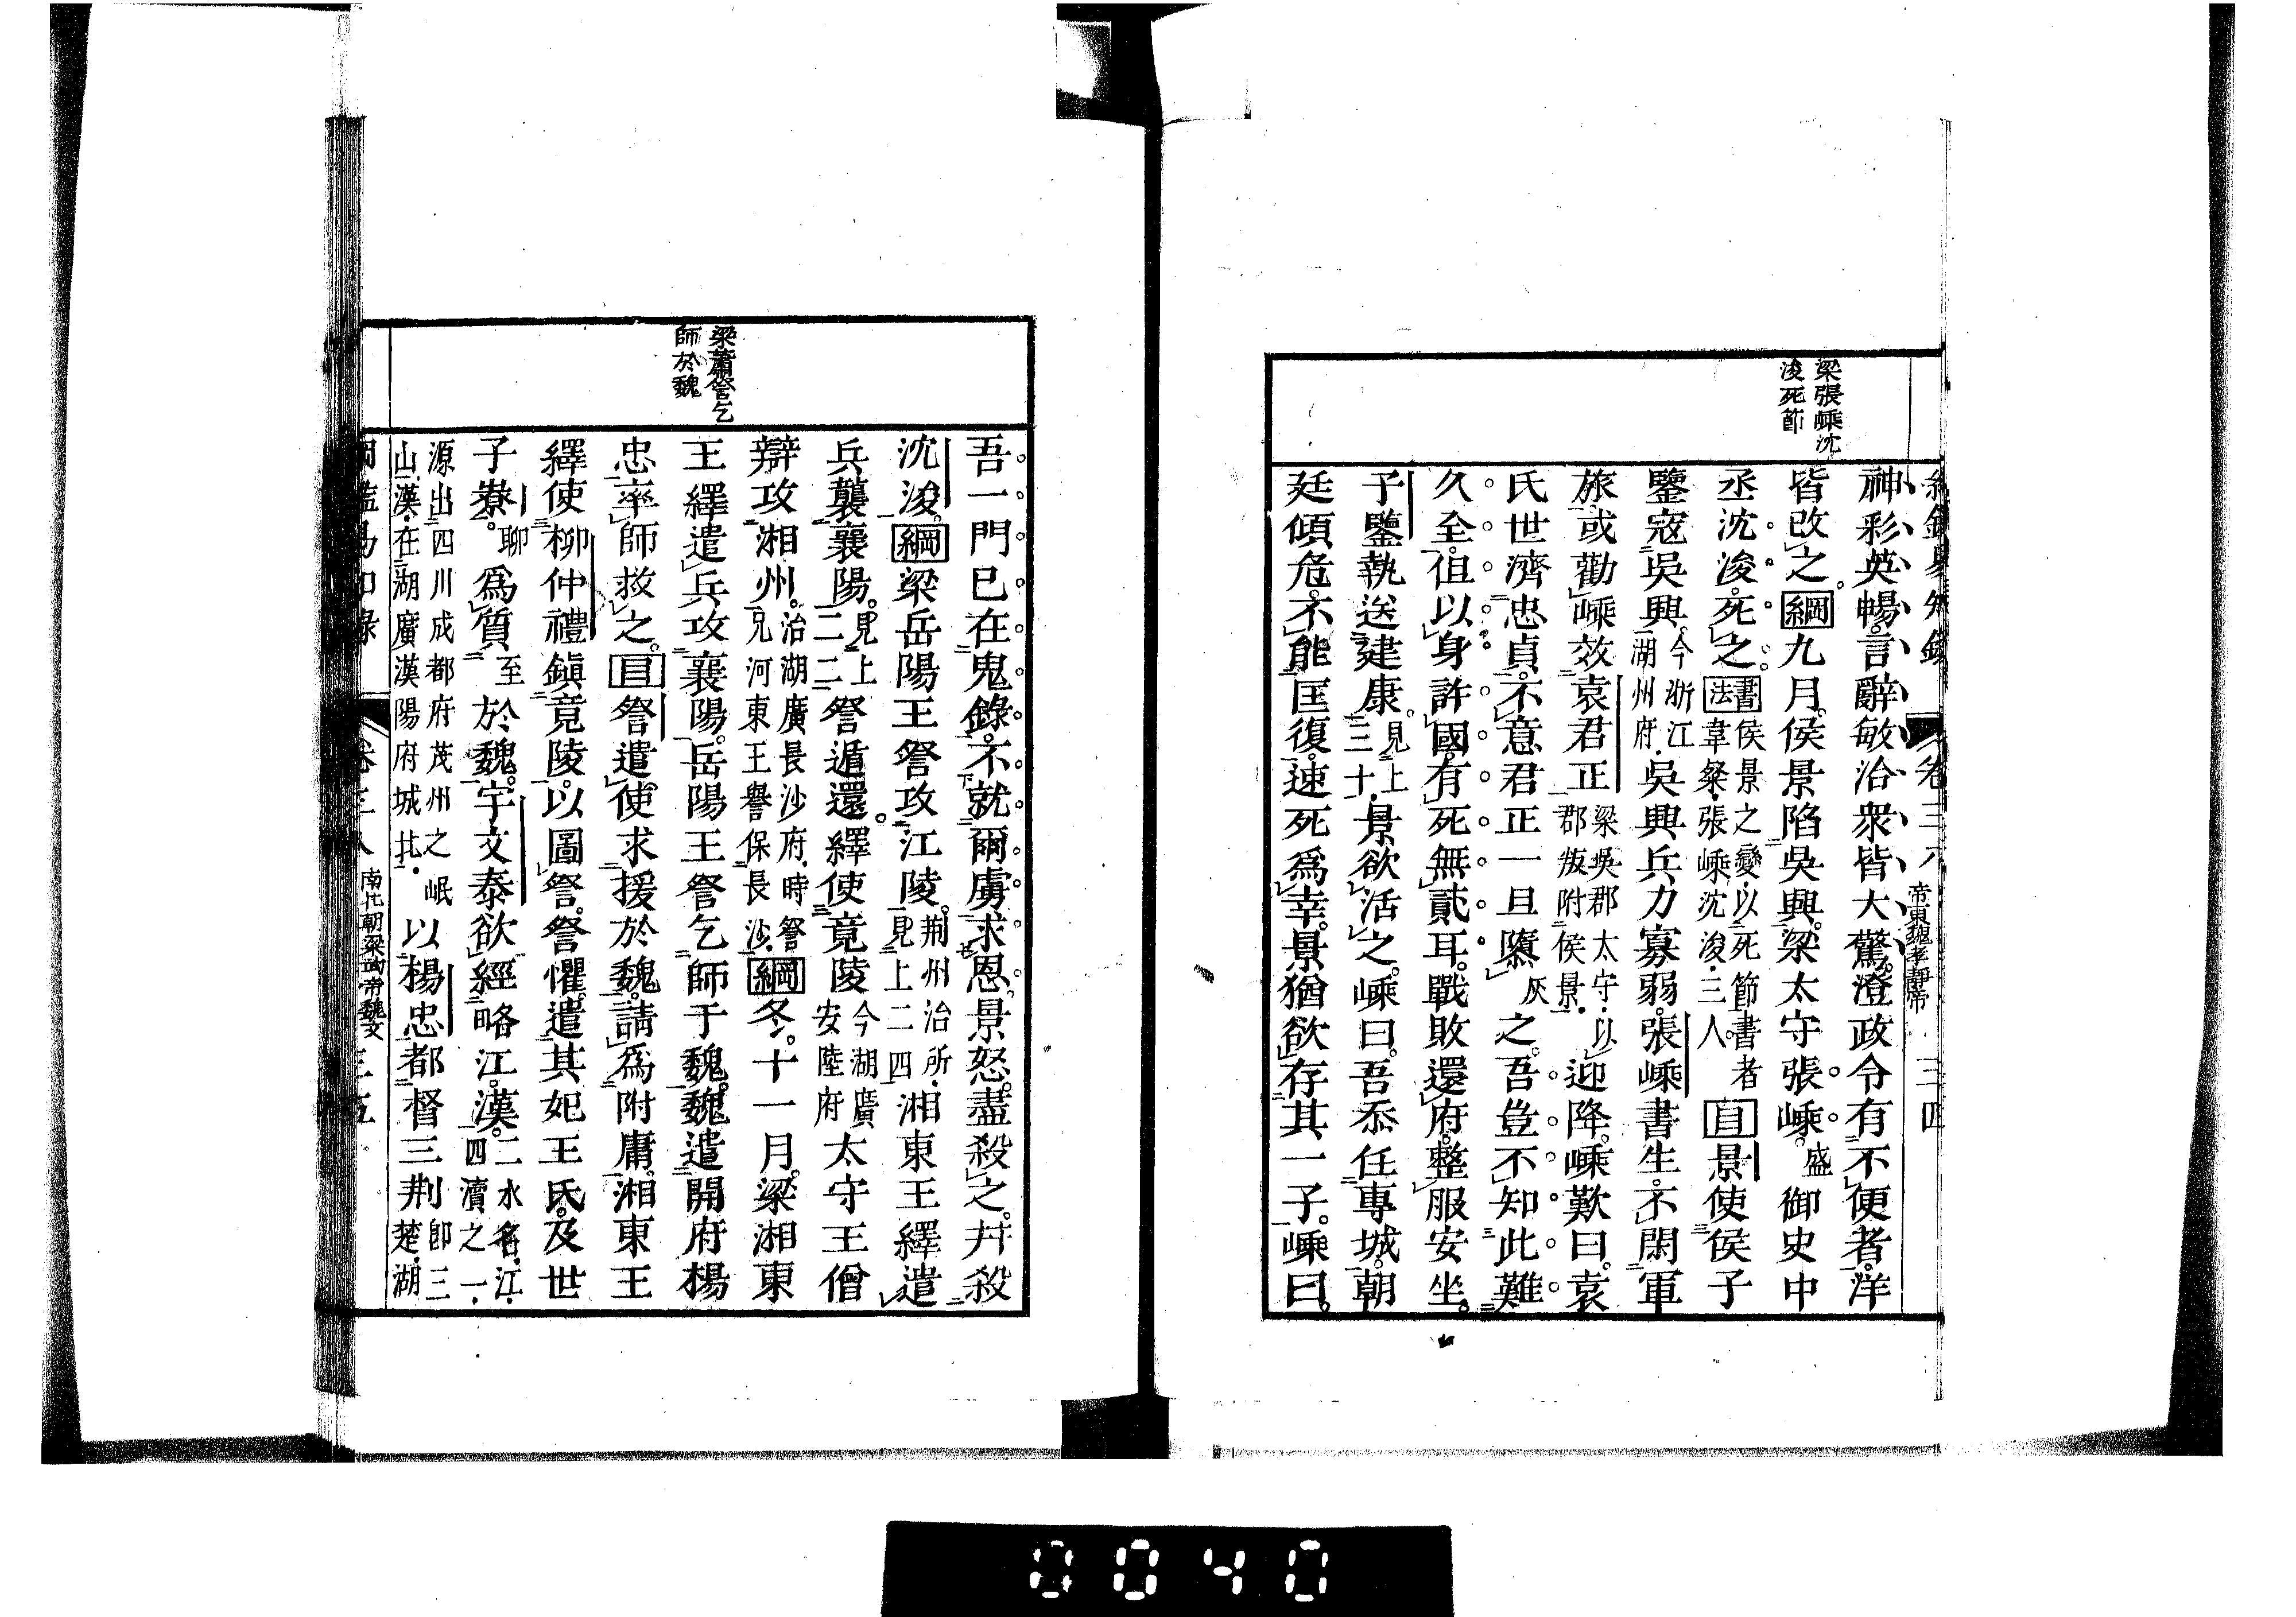 梁張嵊沈
浚死節
神彩英暢。言辭敏洽衆皆大驚。澄政令有不便者。洋
皆改之。綱九月。侯景陷吳興。梁太守張嵊。盛御史中
丞沈浚。死之。書法侯景之變。以死節書者韋粲。張嵊沈浚。三人。目景使侯子
鑒寇吳興。今浙江湖州府。吳興兵力寡弱。張嵊書生。不閑軍
旅。或勸嵊效袁君正梁吳郡太守。以郡叛附侯景。迎降。嵊歎曰。袁
氏世濟忠貞。不意君正一旦隳灰之。吾豈不知此難
久全。但以身許國。有死無貳耳。戰敗還府。整服安坐。
子鑒執送建康。見上三十。景欲活之。嵊曰。吾忝任專城。朝
廷傾危。不能匡復。速死爲幸。景猶欲存其一子。嵊曰。
帝東魏孝靜帝
三四
梁蕭詧乞
師於魏
吾一門已在鬼錄。不就爾虜求恩。景怒。盡殺之。幷殺
沈浚。綱梁岳陽王詧攻江陵。荆州治所。見上二四湘東王繹遣
兵襲襄陽。見上二二詧遁還。繹使竟陵今湖廣安陸府太守王僧
辯攻湘州。治湖廣長沙府。時詧兄河東王譽保長沙。綱冬。十一月。梁湘東
王繹遣兵攻襄陽。岳陽王詧乞師于魏。魏遣開府楊
忠率師救之。目詧遣使求援於魏。請爲附庸。湘東王
繹使柳仲禮鎭竟陵。以圖詧。詧懼。遣其妃王氏。及世
子嶚。聊爲質至於魏。宇文泰欲經略江。漢。二水名。江。四瀆之一。
源出四川成都府茂州之岷山。漢。在湖廣漢陽府城北。以楊忠都督三荆卽三楚。湖
三五